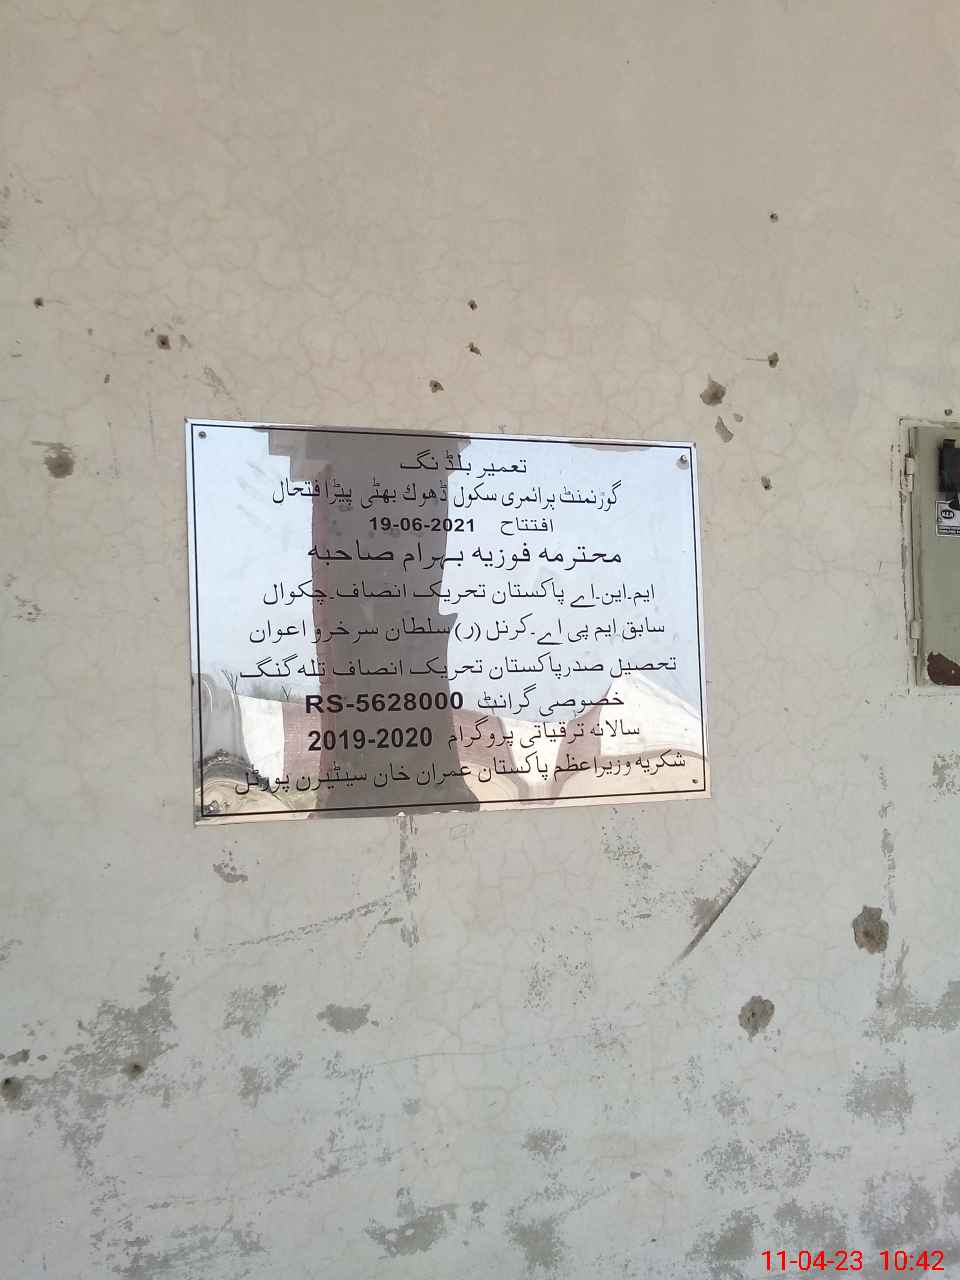 تعمیر بلڈنگ
گورنمنٹ پرائمری سکول ڈھوک بھٹی پیڑا فتحال
افتتاح 19-06-2021
محترمہ فوزیہ بہرام صاحبہ
ایم۔این۔اے پاکستان تحریک انصاف۔چکوال
سابق ایم پی اے۔کرنل (ر) سلطان سرخرو اعوان
تحصیل صدر پاکستان تحریک انصاف تلہ گنگ
خصوصی گرانٹ RS-5628000
سالانہ ترقیاتی پروگرام 2019-2020
شکریہ وزیراعظم پاکستان عمران خان سیٹیزن پورٹل
11-04-23 10:42